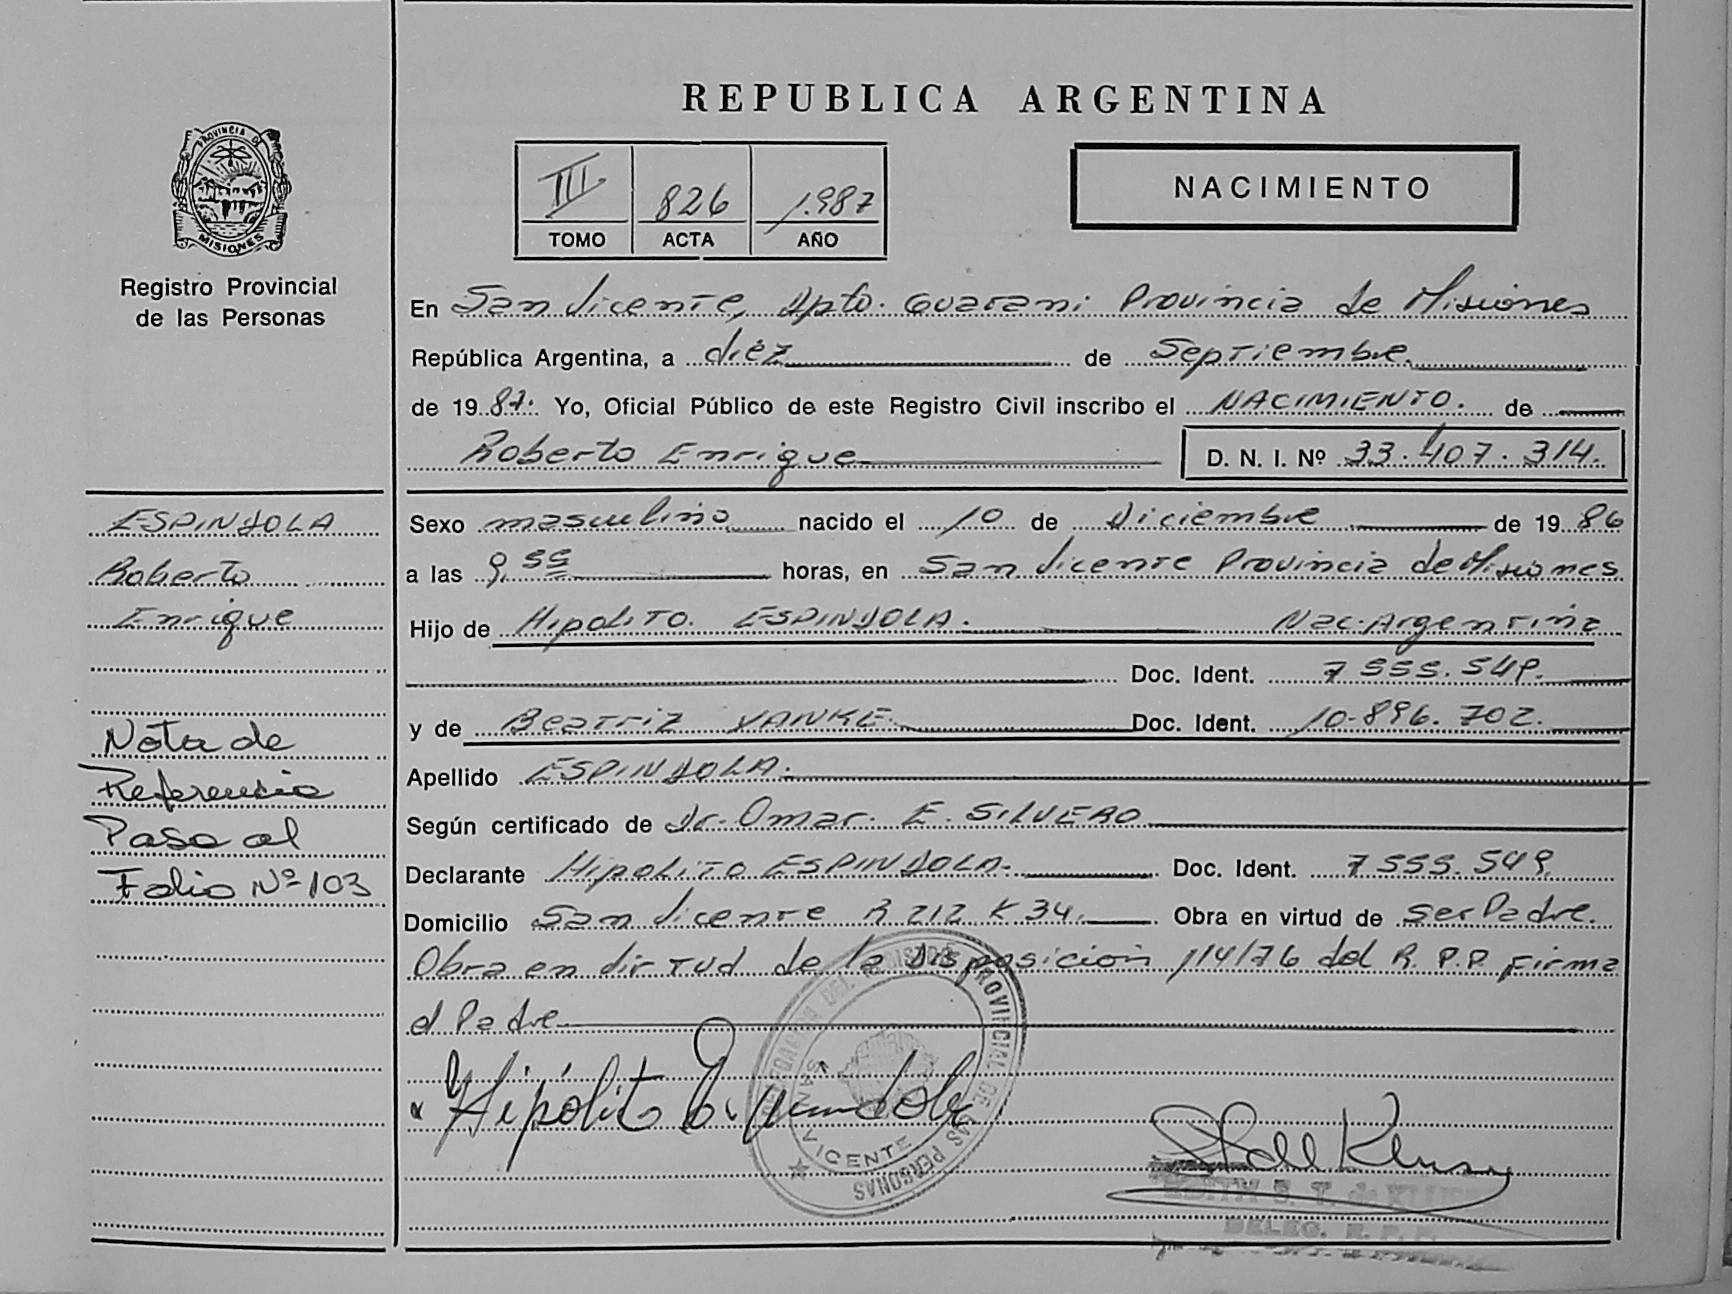 REPUBLICA ARGENTINA
PROVINCIA DE
MISIONES
Registro Provincial
de las Personas
III 826 1.987
TOMO ACTA AÑO
NACIMIENTO
En San Vicente, Dpto. Guarani Provincia de Misiones
República Argentina, a diez de Septiembre
de 19 87. Yo, Oficial Público de este Registro Civil inscribo el NACIMIENTO. de
Roberto Enrique D. N. I. Nº 33.407.314.
ESPINDOLA
Roberto
Enrique
Nota de
Referencia
Pasa al
Folio Nº 103
Sexo masculino nacido el 10 de Diciembre de 19 86
a las 9,55 horas, en San Vicente Provincia de Misiones
Hijo de Hipolito. ESPINDOLA. Nac. Argentina
Doc. Ident. 7 555.549.
y de Beatriz YANKE. Doc. Ident. 10.896.702.
Apellido ESPINDOLA.
Según certificado de Dr. Omar. E. SILVERO
Declarante Hipolito ESPINDOLA. Doc. Ident. 7 555.549.
Domicilio San Vicente R 212 K 34. Obra en virtud de ser Padre.
Obra en virtud de la Disposición 114/76 del R. P.P. Firma
el Padre
Hipólito Espindola
REGISTRO PROVINCIAL DE LAS PERSONAS
SAN VICENTE
EDITH S. T. de
DELEG. R. P. P.